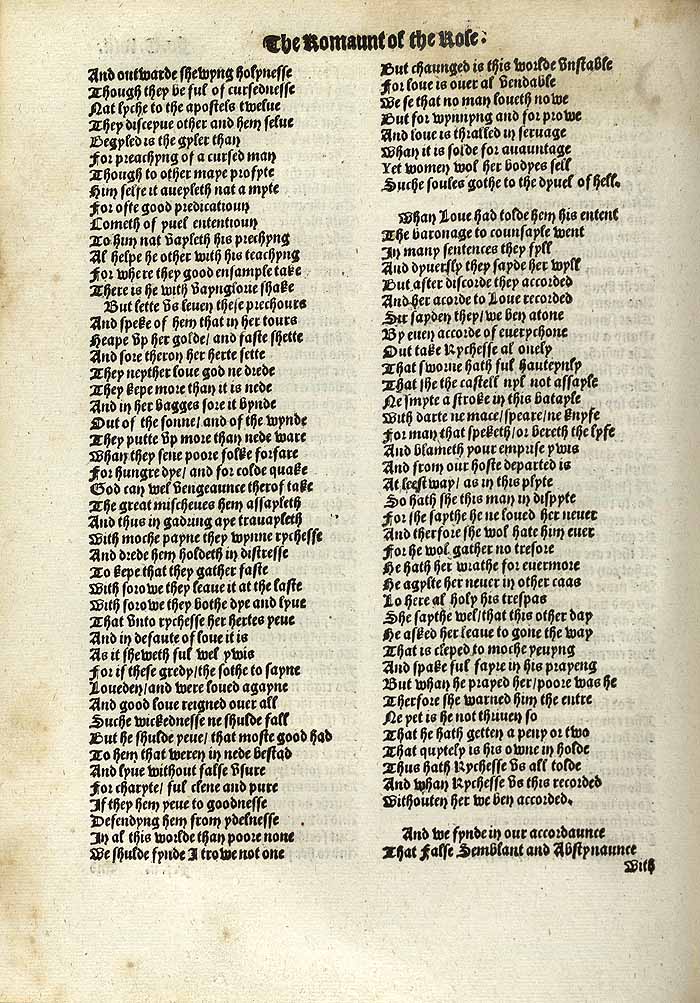 The Romaunt of the Rose.
And outwarde shewyng holynesse
Though they be ful of cursednesse
Nat lyche to the apostels twelue
They disceyue other and hem selue
Begyled is the gyler than
For preachyng of a cursed man
Though to other maye profyte
Him selfe it aueyleth nat a myte
For ofte good predicatioun
Cometh of yuel ententioun
To him nat vayleth his prechyng
Al helpe he other with his teachyng
For where they good ensample take
There is he with vaynglorie shake
But lette vs leuen these prechours
And speke of hem that in her tours
Heape vp her golde/ and faste shette
And sore theron her herte sette
They neyther loue god ne drede
They kepe more than it is nede
And in her bagges sore it bynde
Out of the sonne/ and of the wynde
They putte vp more than nede ware
Whan they sene poore folke forfare
For hungre dye/ and for colde quake
God can wel vengeaunce therof take
The great mischeues hem assayleth
And thus in gadring aye trauayleth
With moche payne they wynne rychesse
And drede hem holdeth in distresse
To kepe that they gather faste
With sorowe they leaue it at the laste
With sorowe they bothe dye and lyue
That vnto rychesse her hertes yeue
And in defaute of loue it is
As it sheweth ful wel ywis
For if these gredy/ the sothe to sayne
Loueden/ and were loued agayne
And good loue reigned ouer all
Suche wickednesse ne shulde fall
But he shulde yeue/ that moste good had
To hem that weren in nede bestad
And lyue without false vsure
For charyte/ ful clene and pure
If they hem yeue to goodnesse
Defendyng hem from ydelnesse
In al this worlde than poore none
We shulde fynde I trowe not one
But chaunged is this worlde vnstable
For loue is ouer al vendable
We se that no man loueth nowe
But for wynnyng and for prowe
And loue is thralled in seruage
Whan it is solde for auauntage
Yet women wol her bodyes sell
Suche soules gothe to the dyuel of hell.
Whan Loue had tolde hem his entent
The baronage to counsayle went
In many sentences they fyll
And dyuersly they sayde her wyll
But after discorde they accorded
And her acorde to Loue recorded
Sir sayden they/ we ben atone
By euen accorde of euerychone
Out take Rychesse al onely
That sworne hath ful hauteynly
That she the castell nyl not assayle
Ne smyte a stroke in this batayle
With darte ne mace/ speare/ ne knyfe
For man that speketh/ or bereth the lyfe
And blameth your emprise ywis
And from our hoste departed is
At leestway/ as in this plyte
So hath she this man in dispyte
For she saythe he ne loued her neuer
And therfore she wol hate him euer
For he wol gather no tresore
He hath her wrathe for euermore
He agylte her neuer in other caas
Lo here al holy his trespas
She saythe wel/ that this other day
He asked her leaue to gone the way
That is cleped to moche yeuyng
And spake ful fayre in his prayeng
But whan he prayed her/ poore was he
Therfore she warned him the entre
Ne yet is he not thriuen so
That he hath getten a peny or two
That quytely is his owne in holde
Thus hath Rychesse vs all tolde
And whan Rychesse vs this recorded
Withouten her we ben accorded.
And we fynde in our accordaunce
That False Semblant and Abstynaunce
With